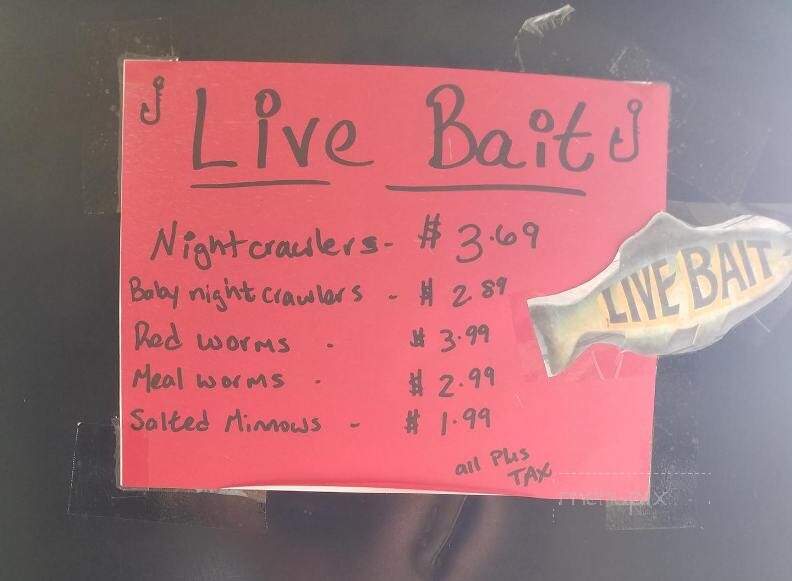 Live Bait
Nightcrawlers- $ 3.69
Baby nightcrawlers - $ 2.89
Red worms - $ 3.99
Meal worms - $ 2.99
Salted Minnows - $ 1.99
all Plus
TAX
LIVE BAIT
menupix